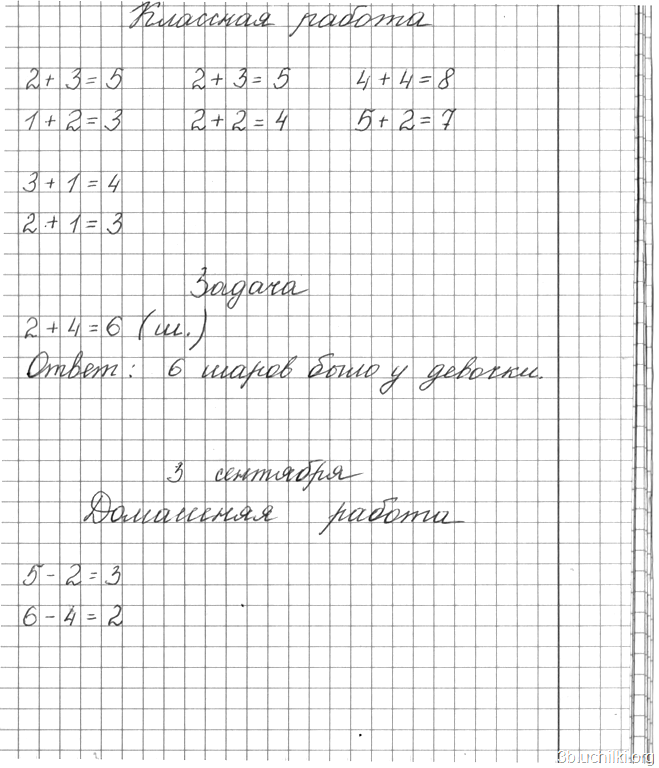 Классная работа
2 + 3 = 5 2 + 3 = 5 4 + 4 = 8
1 + 2 = 3 2 + 2 = 4 5 + 2 = 7
3 + 1 = 4
2 + 1 = 3
Задача
2 + 4 = 6 (ш.)
Ответ: 6 шаров было у девочки.
3 сентября
Домашняя работа
5 - 2 = 3
6 - 4 = 2